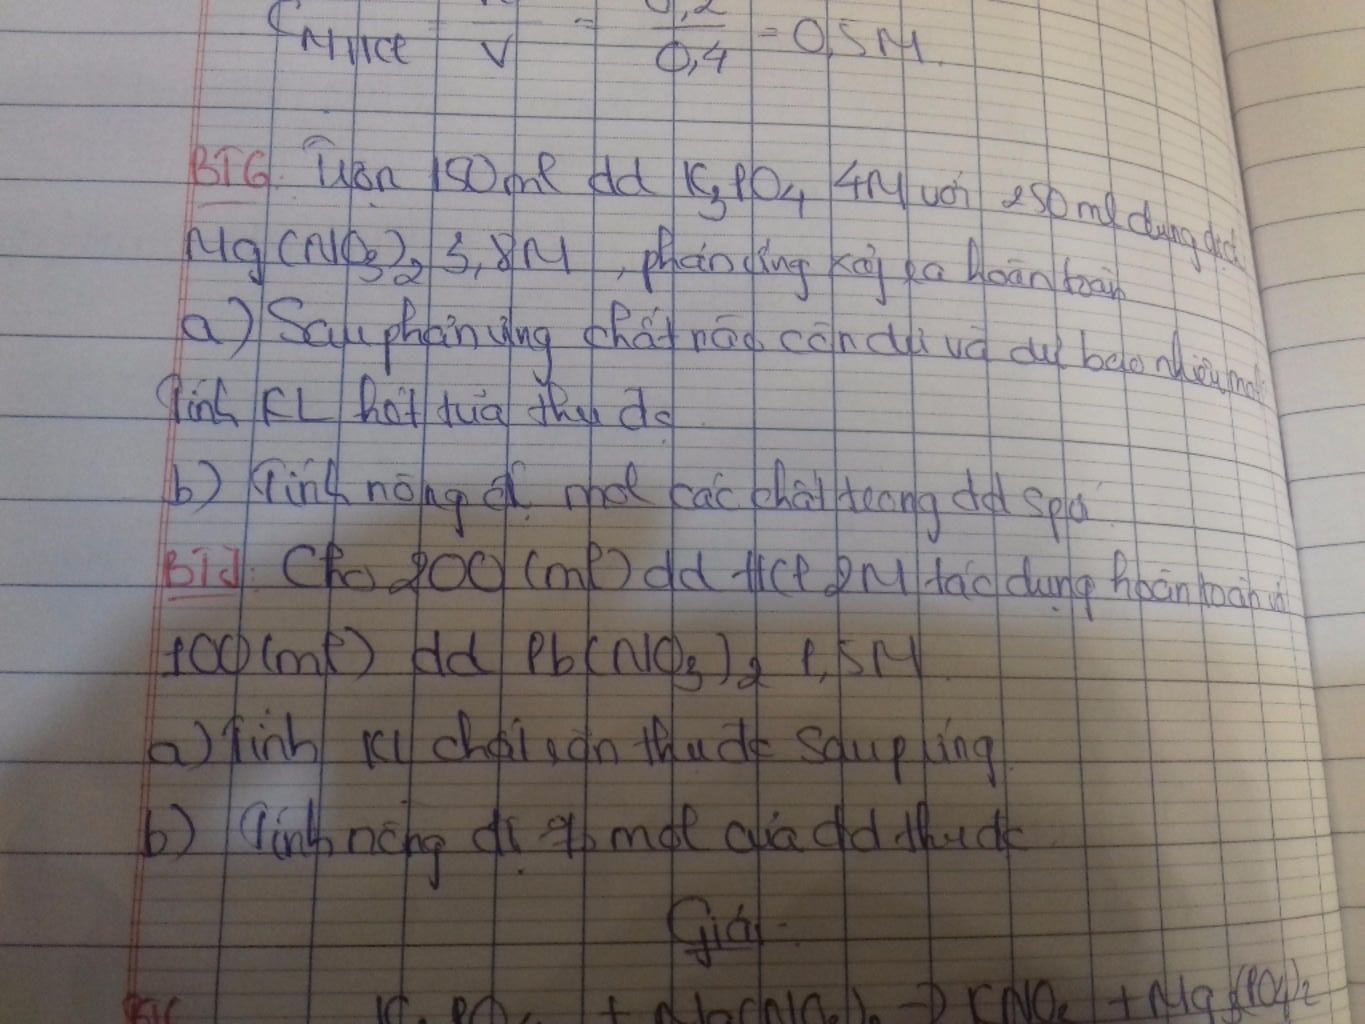 = 0,2/0,4 = 0,5M.
BT6. Trộn 150 ml dd K3PO4 4M với 250 ml dung dịch
Mg(NO3)2 3,8M, phản ứng xảy ra hoàn toàn
a) Sau phản ứng chất nào còn dư và dư bao nhiêu
Tính KL kết tủa thu đc
b) Tính nồng độ mol các chất trong dd spứ
Cho 200 (ml) dd HCl 2M tác dụng hoàn toàn với
100 (ml) dd Pb(NO3)2 1,5M
a) Tính KL chất rắn thu đc sau p ứng
b) Tính nồng độ mol của dd thu đc
Giải
K3PO4 + Mg(NO3)2 → KNO3 + Mg3(PO4)2